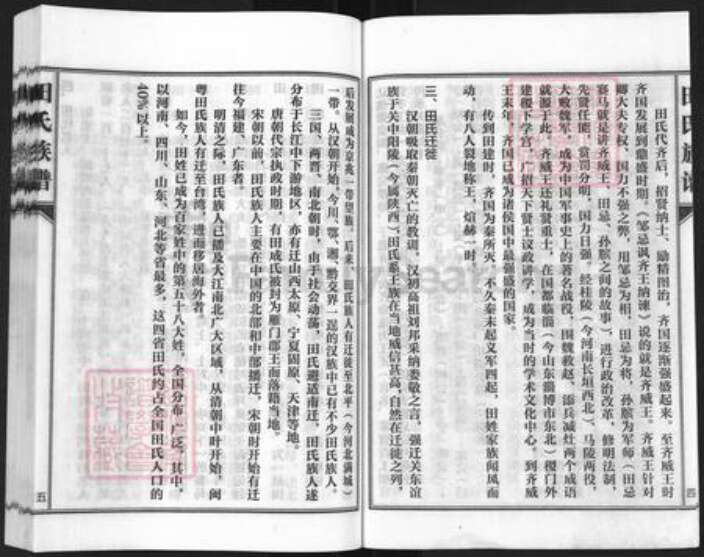 田氏代齐后，招贤纳士、励精图治，齐国逐渐强盛起来。至齐威王时
齐国发展到鼎盛时期。（邹忌讽齐王纳谏）说的就是齐威王。齐威王针对
卿大夫专权、国力不强之弊，用邹忌为相，田忌为将，孙膑为军师（田忌
赛马就是讲齐威王、田忌、孙膑之间的故事），进行政治改革，修明法制，
先贤任能，赏罚分明，国力日强。经桂陵（今河南长垣西北）、马陵两役，
大败魏军，成为中国军事史上的著名战役，围魏救赵、添兵减灶两个成语
就源于此。齐威王还礼贤重士，在国都临淄（今山东淄博市东北）稷门外
建稷下学宫，广招天下贤士议政讲学，成为当时的学术文化中心。到齐威
王末年，齐国已成为诸侯国中最强盛的国家。
传到田建时，齐国为秦所灭，不久秦末起义军四起，田姓家族闻风而
动，有八人裂地称王，煊赫一时。
三、田氏迁徙
汉朝吸取秦朝灭亡的教训，汉初高祖刘邦采纳娄敬之言，强迁关东谊
族于关中阳陵（今属陕西），田氏系王族在当地威信甚高，自然在迁徙之列，
田氏族谱
四
后发展成为京兆一带望族。后来，田氏族人有迁徙至北平（今河北满城）
一带。从汉朝开始，今川、鄂、湘、黔交界一逞的汉族中已有不少田氏族人。
三国、两晋、南北朝时，由于社会动荡，田氏避适南迁，田氏族人遂
分布于长江中下游地区，亦有迁山西太原、宁夏固原、天津等地。
唐朝代宗执政时期，有田成氏被封为雁门郡王而落籍当地。
宋朝以前，田氏族人主要在中国的北部和中部搬迁，宋朝时开始有迁
往今福建、广东者。
明清之际，田氏族人已播及大江南北广大区域，从清朝中叶开始，闽
粤田氏族人有迁至台湾，进而移居海外者。
如今，田姓已成为百家姓中的第五十八大姓，全国分布，广泛，其中，
以河南、四川、山东、河北等省最多，这四省田氏约占全国田氏人口的
40%以上。
田氏族谱
五